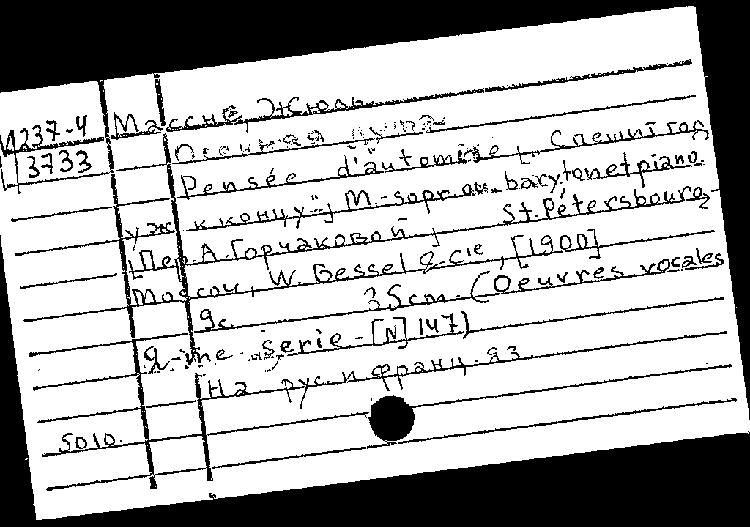 М237-4 Массне, Жюль
3733 Осенняя дума
Pensée d'automne „Спешит год
уж к концу"; M.-sopr. ou barytonet piano
[Пер. А. Горчаковой; St. Pétersbourg-
Moscou, W. Bessel & Cie, [1900]
9с. 35cm. (Oeuvres vocales
2-me serie-[N] 147)
На рус. и франц. яз
5010.